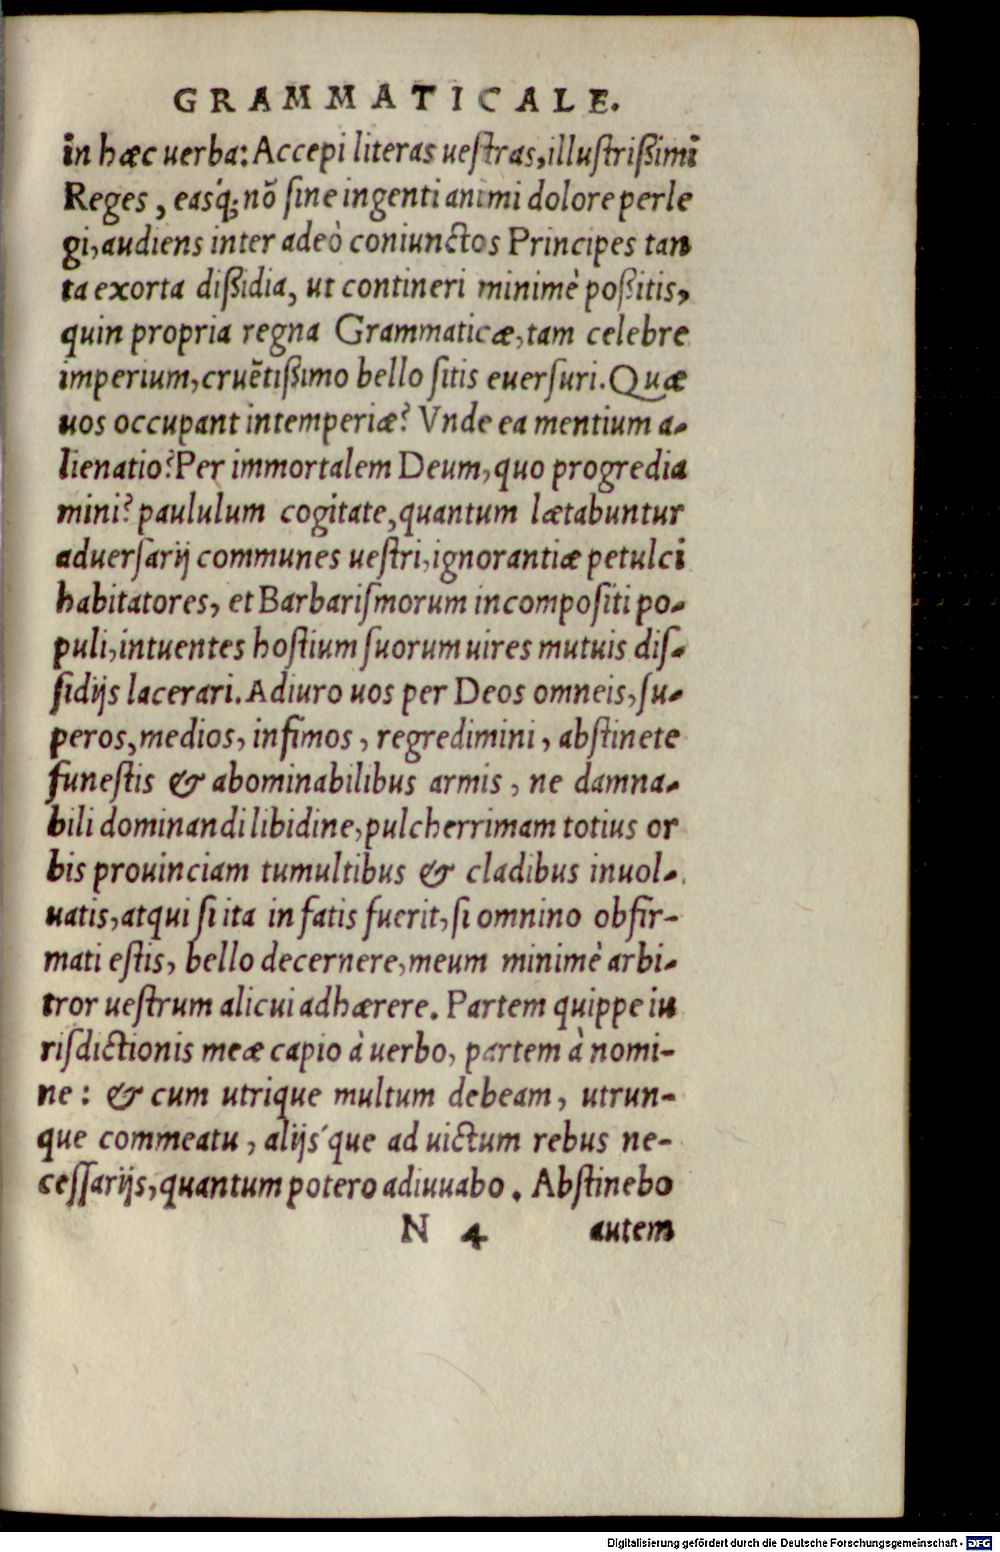 GRAMMATICALE.
in hæc uerba: Accepi literas uestras, illustrißimi
Reges, easq́; nõ sine ingenti animi dolore perle
gi, audiens inter adeò coniunctos Principes tan
ta exorta dißidia, ut contineri minimè poßitis,
quin propria regna Grammaticæ, tam celebre
imperium, cruẽtißimo bello sitis euersuri. Quæ
uos occupant intemperiæ? Vnde ea mentium a-
lienatio? Per immortalem Deum, quo progredia
mini? paululum cogitate, quantum lætabuntur
aduersarij communes uestri, ignorantiæ petulci
habitatores, et Barbarismorum incompositi po-
puli, intuentes hostium suorum uires mutuis dis-
sidijs lacerari. Adiuro uos per Deos omneis, su-
peros, medios, infimos, regredimini, abstinete
funestis & abominabilibus armis, ne damna-
bili dominandi libidine, pulcherrimam totius or
bis prouinciam tumultibus & cladibus inuol-
uatis, atqui si ita in fatis fuerit, si omnino obfir-
mati estis, bello decernere, meum minimè arbi-
tror uestrum alicui adhærere. Partem quippe iu
risdictionis meæ capio à uerbo, partem à nomi-
ne: & cum utrique multum debeam, utrun-
que commeatu, alijs'que ad uictum rebus ne-
cessarijs, quantum potero adiuuabo. Abstinebo
N 4 autem
Digitalisierung gefördert durch die Deutsche Forschungsgemeinschaft - DFG